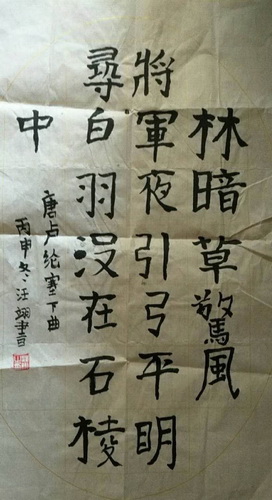 林暗草驚風
將軍夜引弓平明
尋白羽没在石棱
中
唐卢纶塞下曲
丙申冬汪翊書